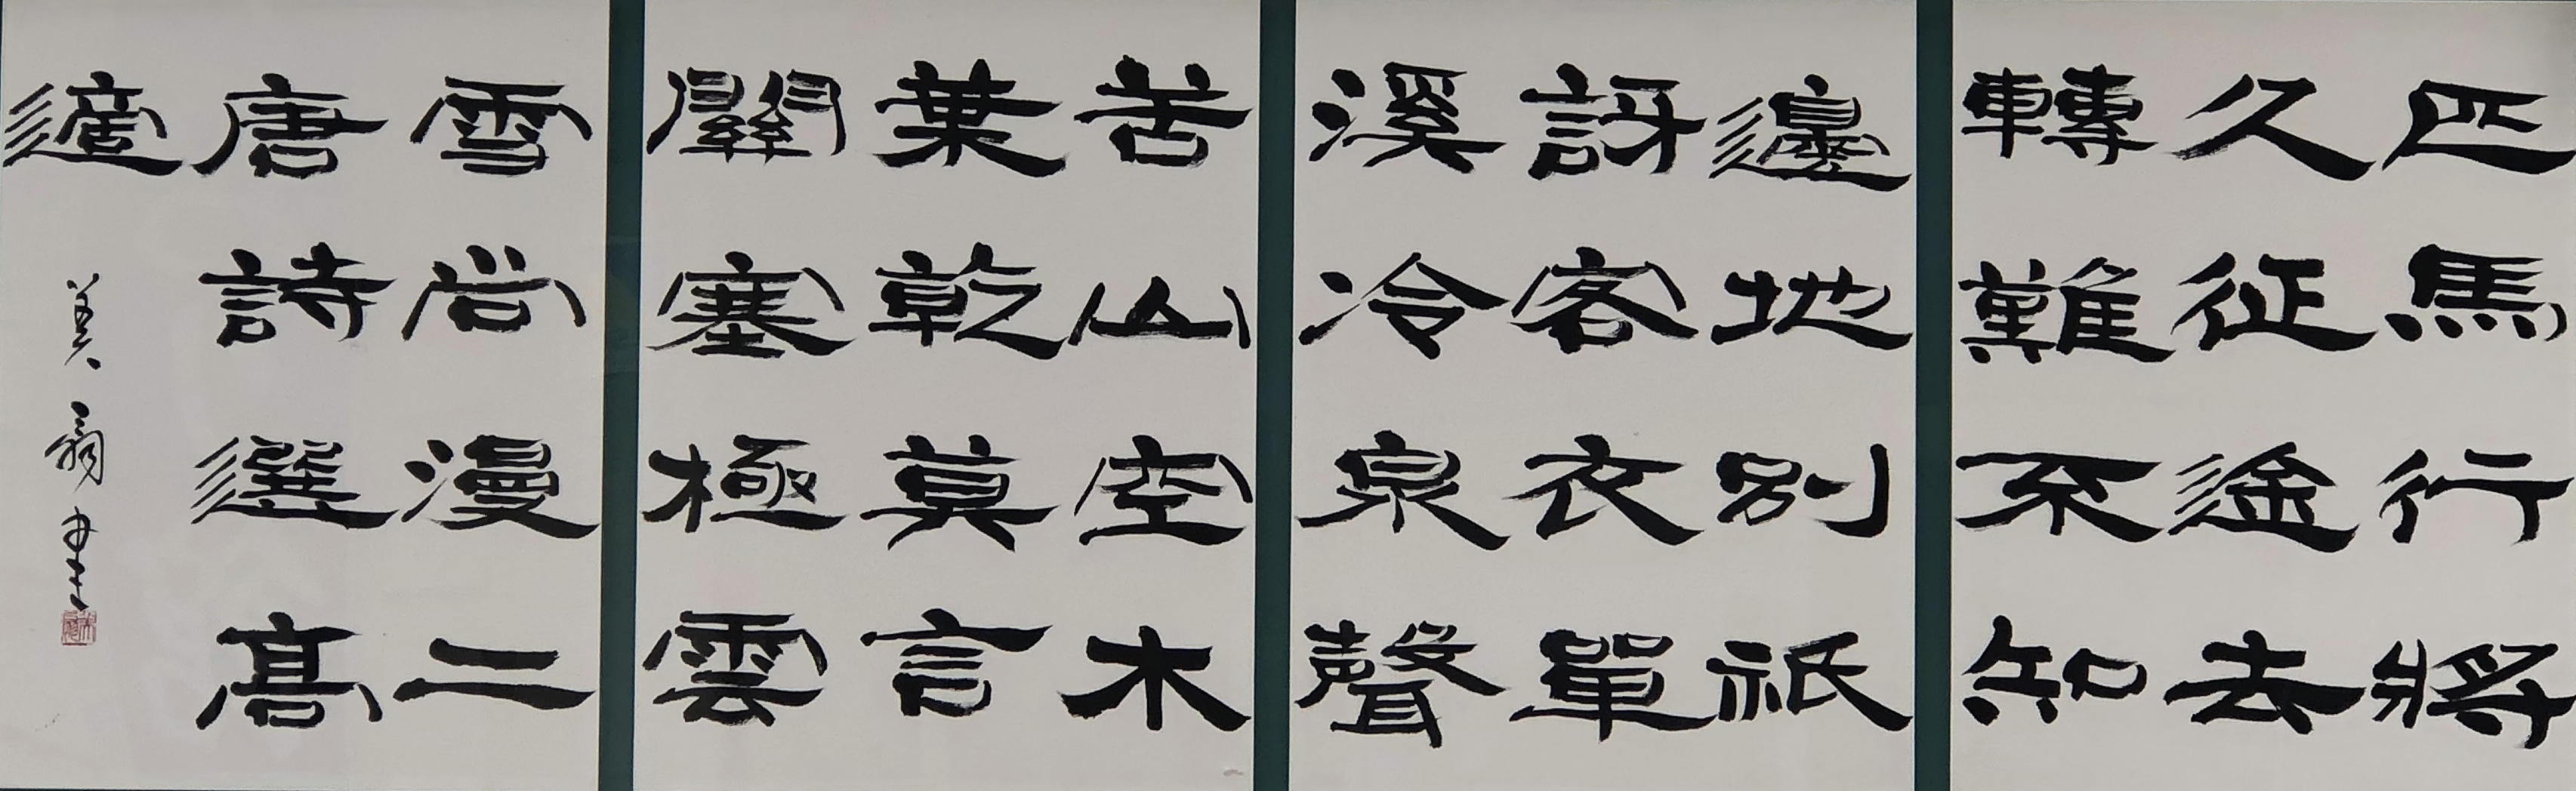 匹馬行將
久征途去
轉難不知
邊地別祇
訝客衣單
溪冷泉聲
苦山空木
葉乾莫言
關塞極雲
雪尚漫二
唐詩選高
適
美翁書